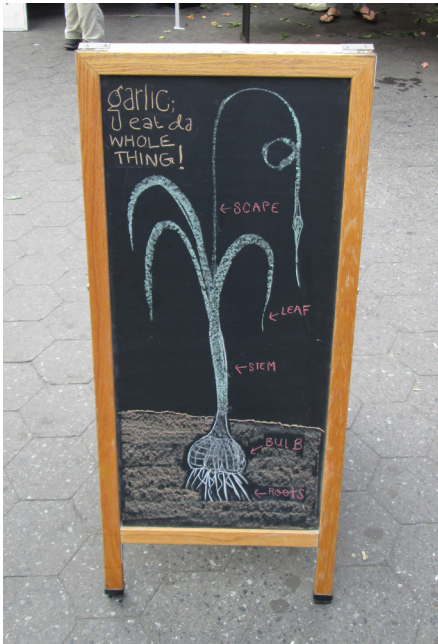 garlic;
U eat da
WHOLE
THING!
←SCAPE
←LEAF
←STEM
←BULB
←ROOTS